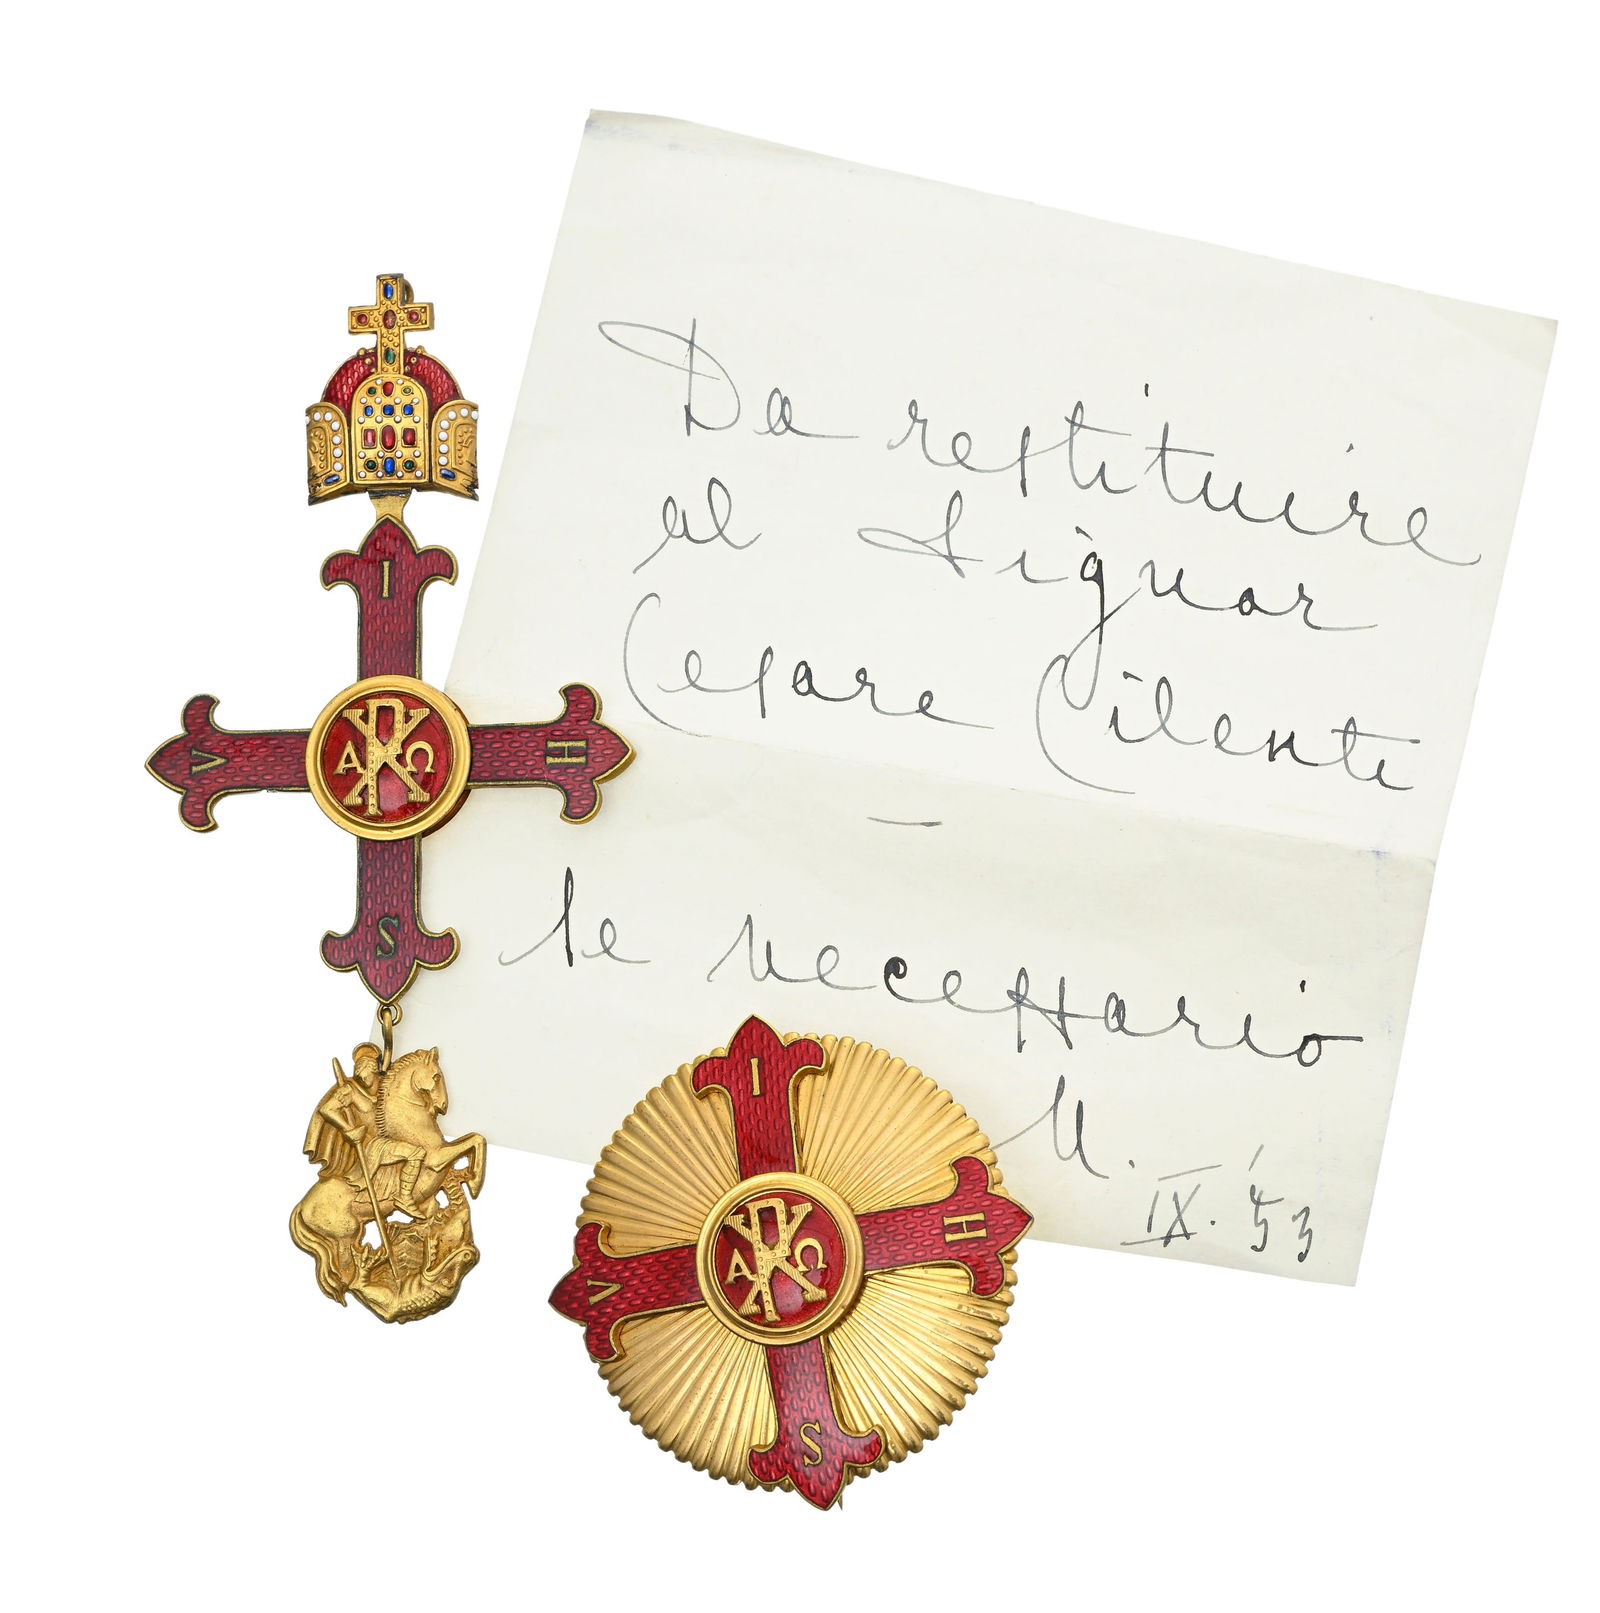 Da restituire
al Signor
Cesare Cilenti
—
se necessario
M. IX. '53
I
V
H
S
Α
Ω
I
V
H
S
Α
Ω